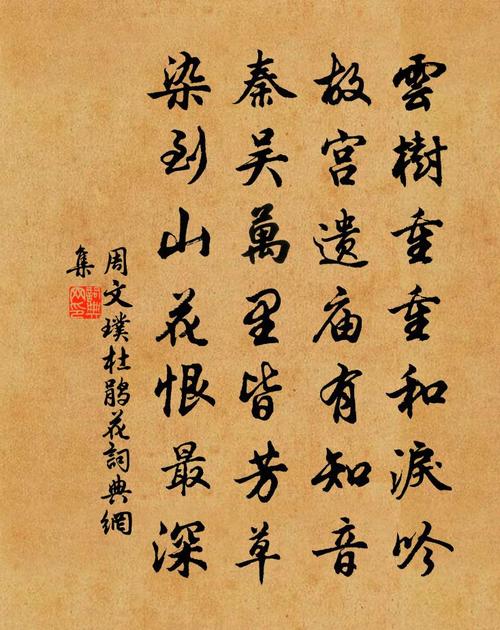 雲樹重重和淚吟
故宮遺庙有知音
秦吴萬里皆芳草
染到山花恨最深
周文璞杜鹃花詞典網
集